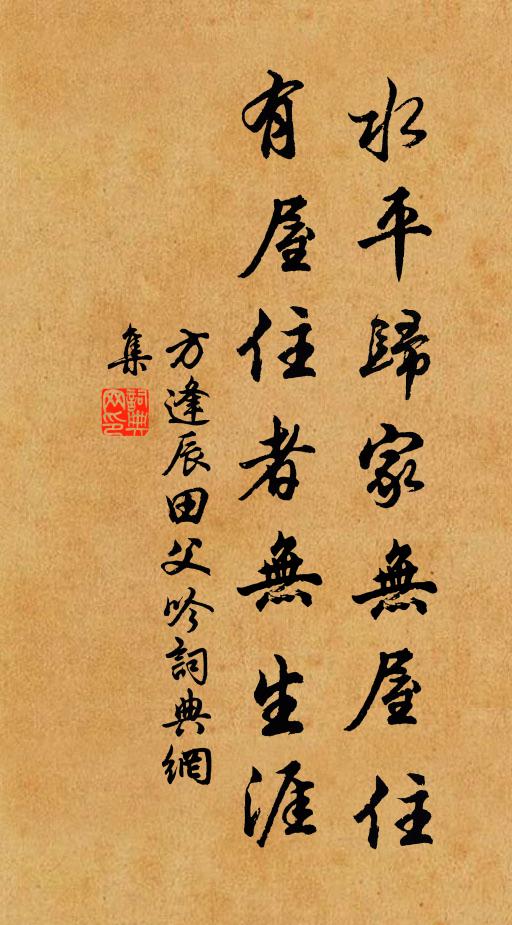 水平歸家無屋住
有屋住者無生涯
方逢辰田父吟詞典網
集
詞典網印